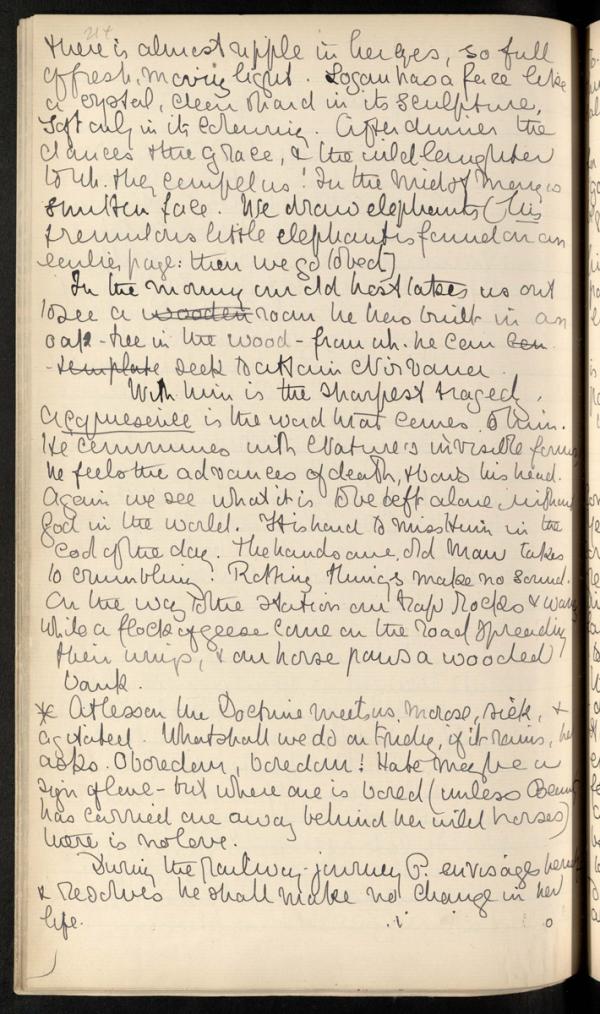 214
there is almost ripple in her eyes, so full
of fresh, moving light. Logan has a face like
a crystal, clear & hard in its sculpture,
soft only in its colouring. After dinner the
dances & the grace, & the wild laughter
to wh. they compel us! In the mid of many a
smitten face. We draw elephants (his
tremulous little elephant is found on an
earlier page: then we go to bed]
In the morning our old host takes us out
to see a wooden room he has built in an
oak-tree in the wood - from wh. he can con
-template seek to attain Nirvana.
With him is the sharpest tragedy.
Acquiescence is the word that comes to him.
He communes with Nature's invisible forms
he feels the advances of death, & bows his head.
Again we see what it is to be left alone, without
God in the world. It is hard to miss Him in the
cool of the day. The handsome old Man takes
to crumbling! Rotting things make no sound.
On the way to the station our trap rocks &
while a flock of geese come on the road spreading
their wings, & our horse paws a wooded
bank.
* At lesson the Doctrine meets us, morose, sick, &
agitated. What shall we do on Friday, if it rains, he
asks. O boredom, boredom! Hate may be a
sign of love - but where one is bored (unless Beauty
has carried one away behind her wild horses)
there is no love.
During the railway-journey P. envisages
& resolves he shall make no change in her
life.